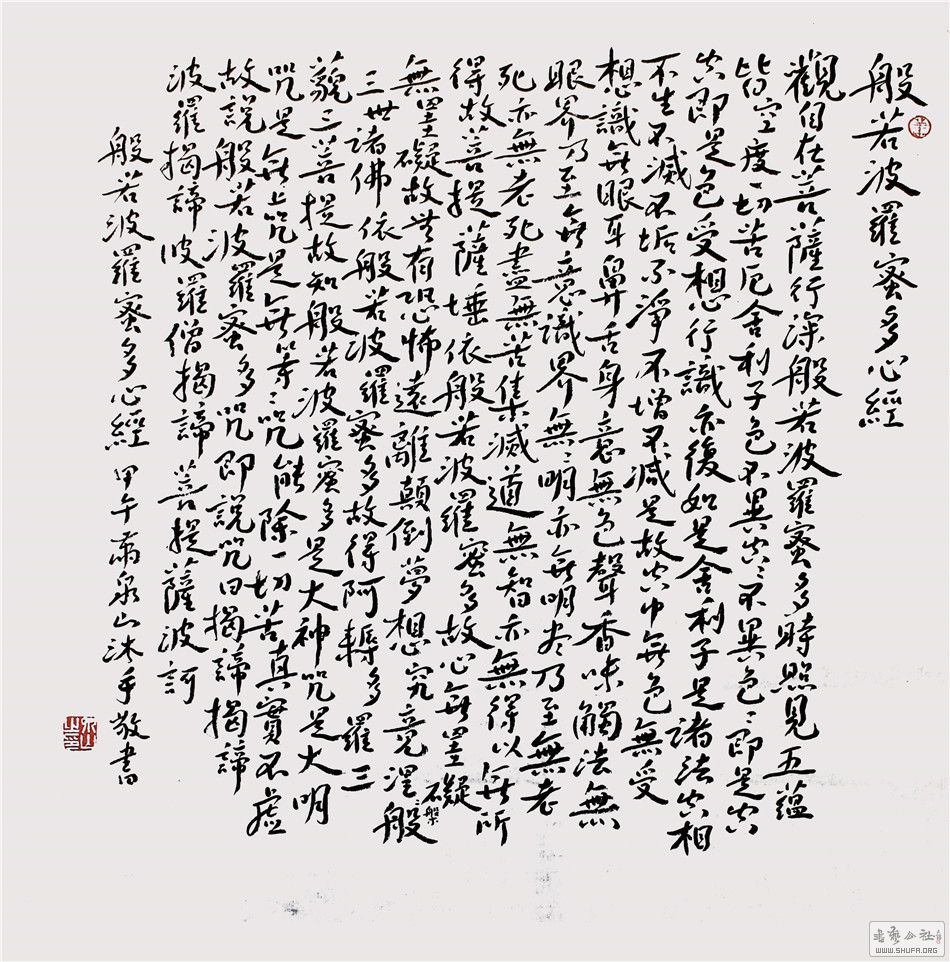 般若波羅蜜多心經
觀自在菩薩行深般若波羅蜜多時照見五蘊
皆空度一切苦厄舍利子色不異空〻不異色〻即是空
空即是色受想行識亦復如是舍利子是諸法空相
不生不滅不垢不淨不增不減是故空中無色無受
想識無眼耳鼻舌身意無色聲香味觸法無
眼界乃至無意識界無〻明亦無明尽乃至無老
死亦無老死盡無苦集滅道無智亦無得以無所
得故菩提薩埵依般若波羅蜜多故心無罣礙
無罣礙故無有恐怖遠離顛倒夢想究竟涅般
槃
三世諸佛依般若波羅蜜多故得阿耨多羅三
藐三菩提故知般若波羅蜜多是大神咒是大明
咒是無上咒是無等〻咒能除一切苦真實不虛
故說般若波羅蜜多咒即說咒曰揭諦揭諦
波羅揭諦波羅僧揭諦菩提薩波訶
般若波羅蜜多心經 甲午 泉山沐手敬書
WWW.SHUFA.ORG